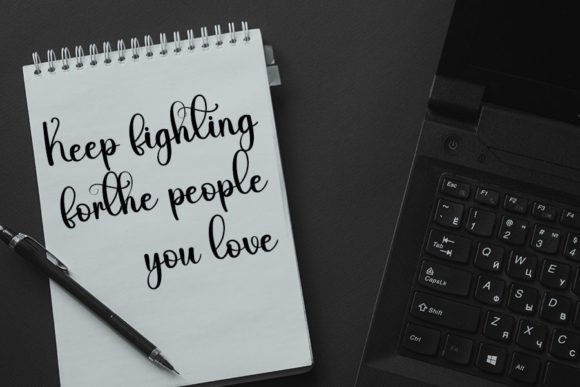 Keep fighting
forthe people
you love
Esc F1 F2 F3 F4
~ Ё ! 1 @ 2 " # 3 №
Tab Q Й W Ц E У
CapsLk A Ф S Ы D В
Shift Z Я X Ч
Ctrl Fn Alt